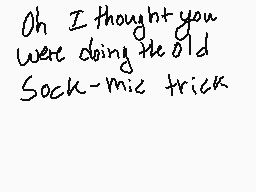 Oh I thought you
were doing the old
Sock-mic trick